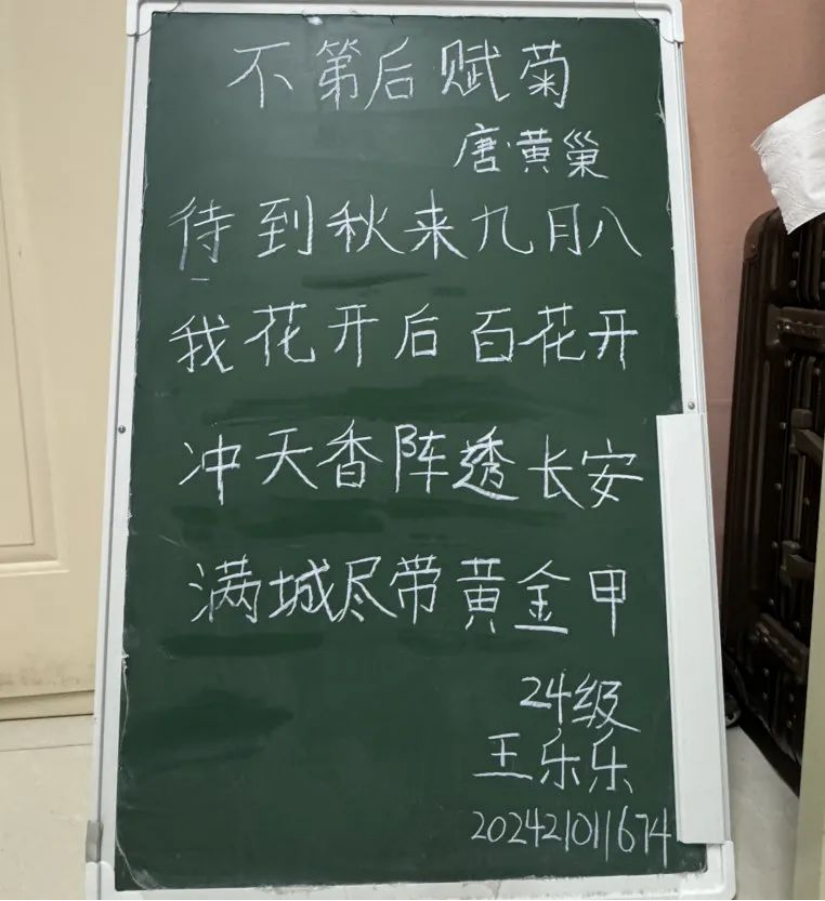 不第后赋菊
唐·黄巢
待到秋来九月八
我花开后百花开
冲天香阵透长安
满城尽带黄金甲
24级
王乐乐
202421011674